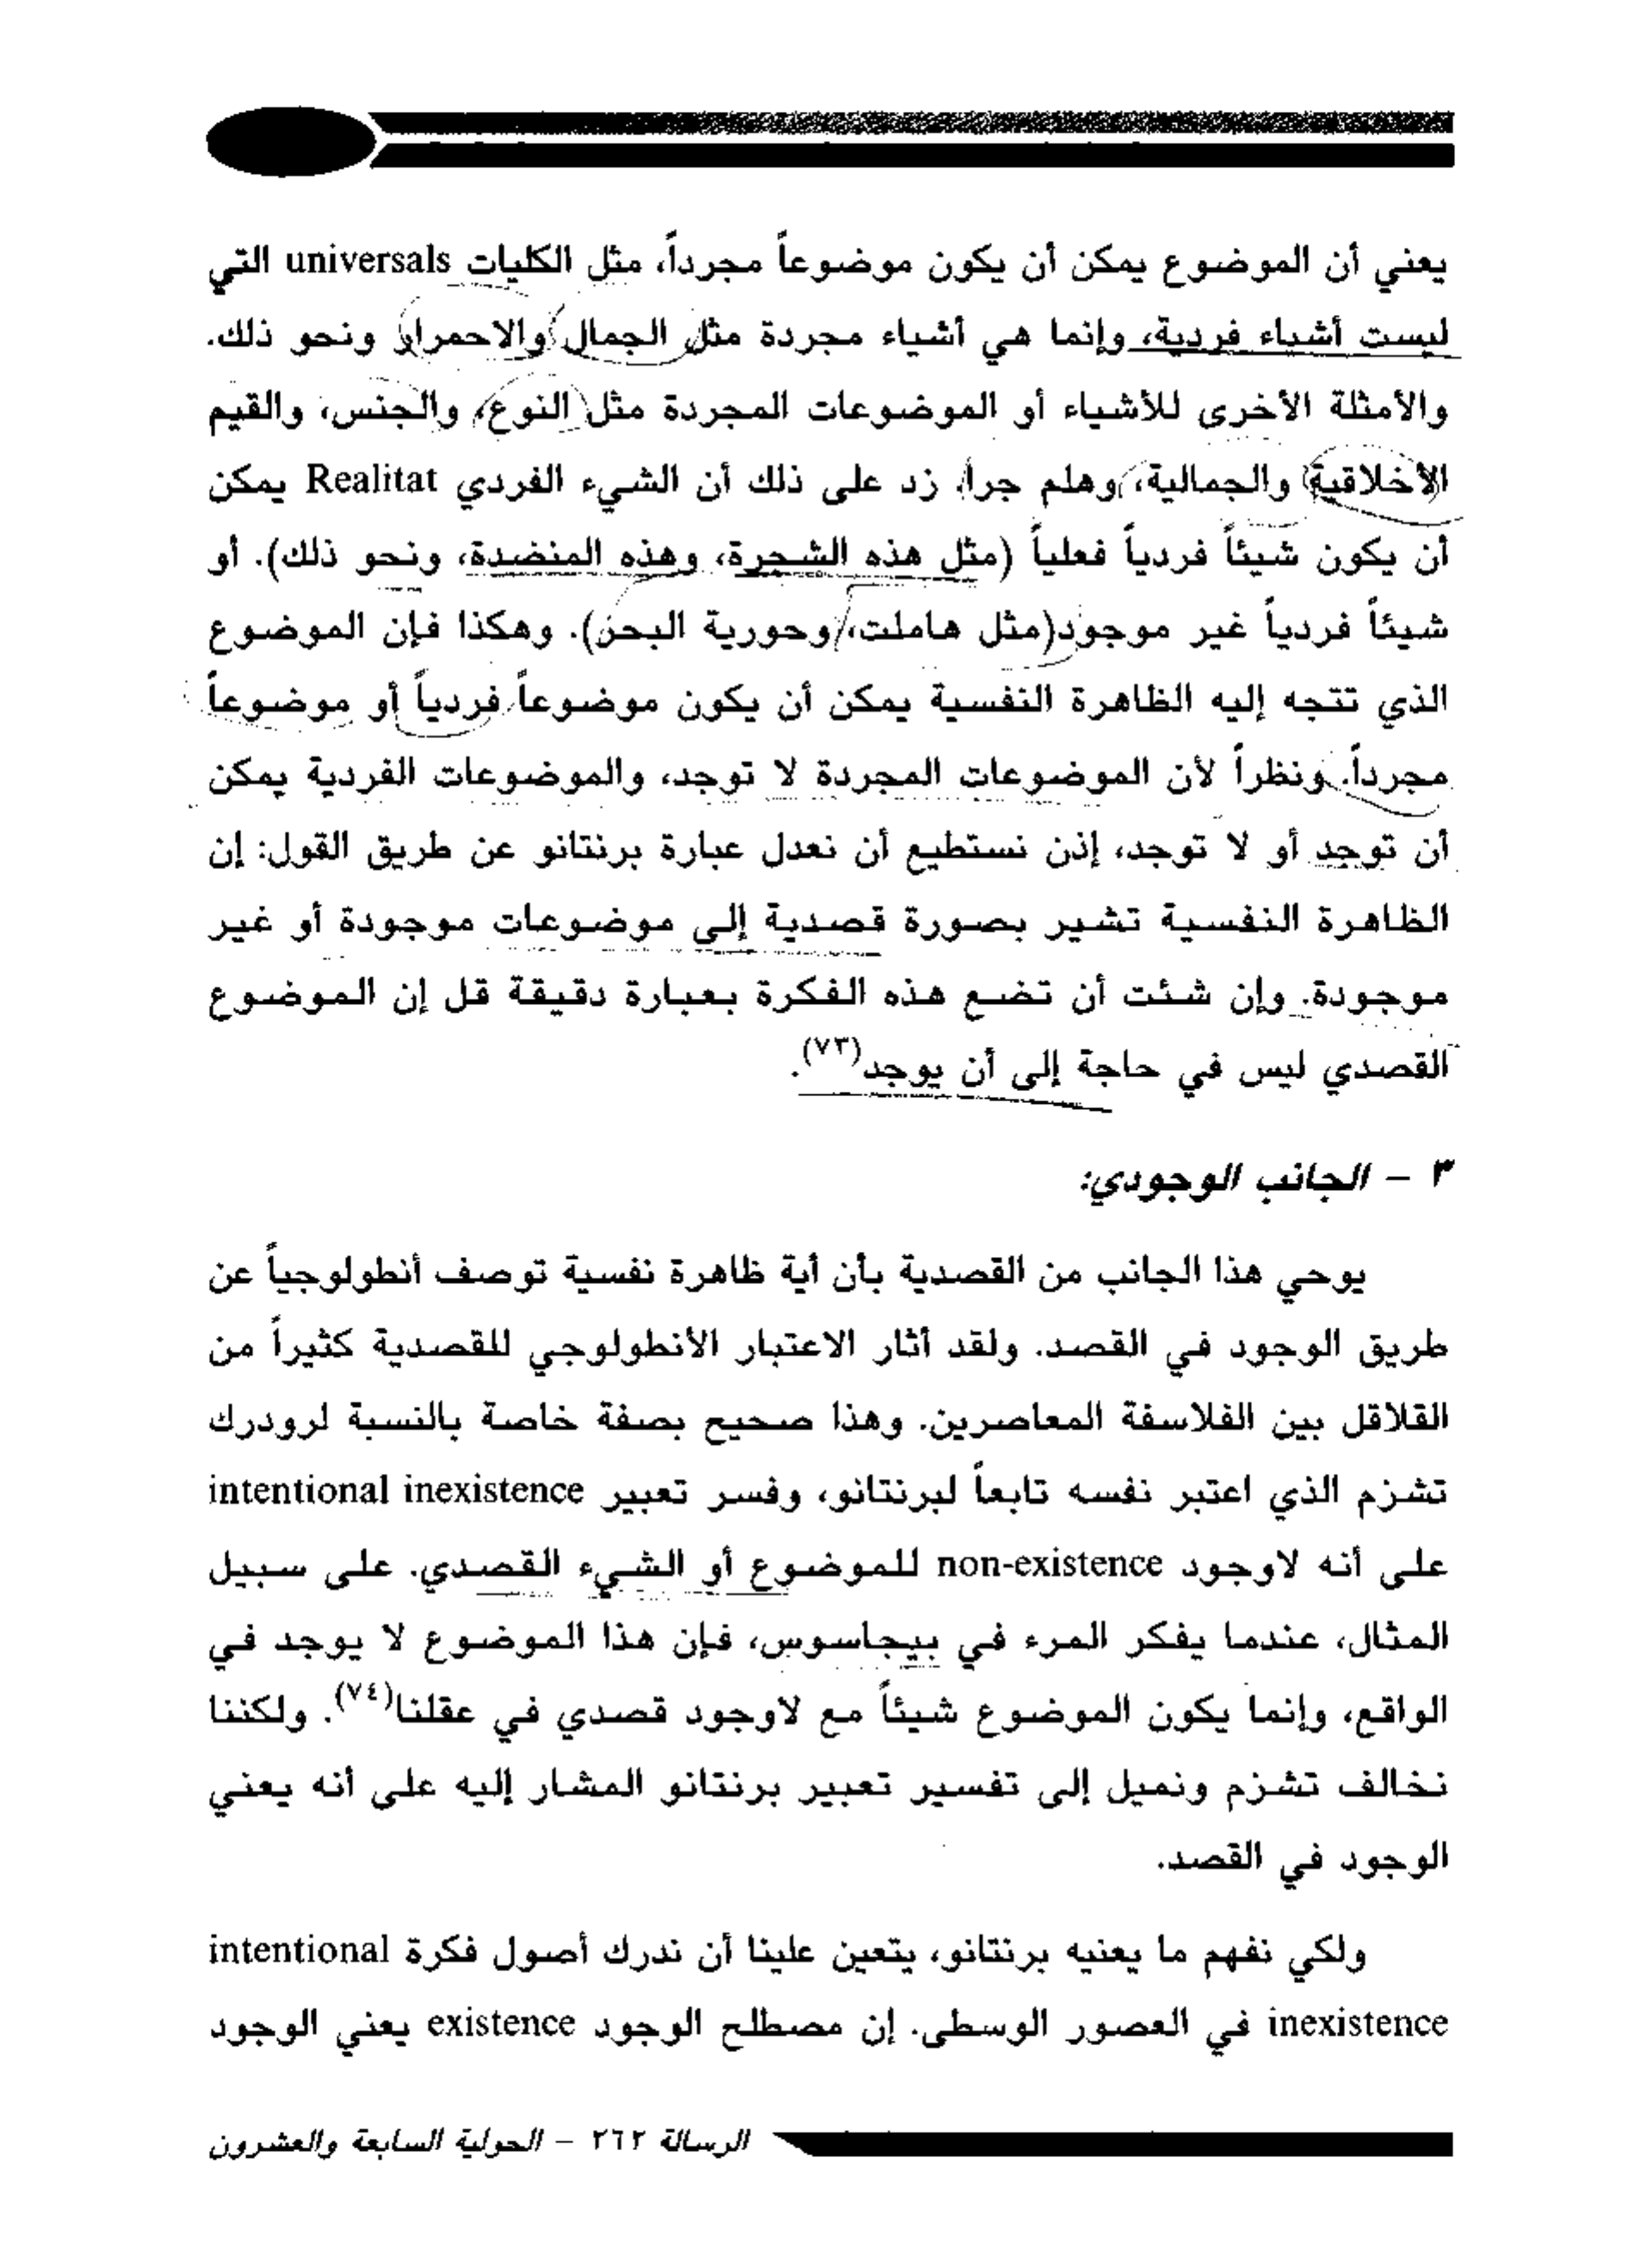 يعني أن الموضوع يمكن أن يكون موضوعاً مجرداً، مثل الكليات universals التي
ليست أشياء فردية، وإنما هي أشياء مجردة مثل الجمال والاحمرار ونحو ذلك.
والأمثلة الأخرى للأشياء أو الموضوعات المجردة مثل النوع، والجنس، والقيم
الأخلاقية والجمالية، وهلم جرا. زد على ذلك أن الشيء الفردي Realitat يمكن
أن يكون شيئاً فردياً فعلياً (مثل هذه الشجرة، وهذه المنضدة، ونحو ذلك). أو
شيئاً فردياً غير موجود (مثل هاملت، وحورية البحر). وهكذا فإن الموضوع
الذي تتجه إليه الظاهرة النفسية يمكن أن يكون موضوعاً فردياً أو موضوعاً
مجرداً. ونظراً لأن الموضوعات المجردة لا توجد، والموضوعات الفردية يمكن
أن توجد أو لا توجد، إذن نستطيع أن نعدل عبارة برنتانو عن طريق القول: إن
الظاهرة النفسية تشير بصورة قصدية إلى موضوعات موجودة أو غير
موجودة. وإن شئت أن تضع هذه الفكرة بعبارة دقيقة قل إن الموضوع
القصدي ليس في حاجة إلى أن يوجد(٧٣).
٣ - الجانب الوجودي:
يوحي هذا الجانب من القصدية بأن أية ظاهرة نفسية توصف أنطولوجياً عن
طريق الوجود في القصد. ولقد أثار الاعتبار الأنطولوجي للقصدية كثيراً من
القلاقل بين الفلاسفة المعاصرين. وهذا صحيح بصفة خاصة بالنسبة لرودرك
تشزم الذي اعتبر نفسه تابعاً لبرنتانو، وفسر تعبير intentional inexistence
على أنه لاوجود non-existence للموضوع أو الشيء القصدي. على سبيل
المثال، عندما يفكر المرء في بيجاسوس، فإن هذا الموضوع لا يوجد في
الواقع، وإنما يكون الموضوع شيئاً مع لاوجود قصدي في عقلنا(٧٤). ولكننا
نخالف تشزم ونميل إلى تفسير تعبير برنتانو المشار إليه على أنه يعني
الوجود في القصد.
ولكي نفهم ما يعنيه برنتانو، يتعين علينا أن ندرك أصول فكرة intentional
inexistence في العصور الوسطى. إن مصطلح الوجود existence يعني الوجود
الرسالة ٢٦٢ - الحولية السابعة والعشرون